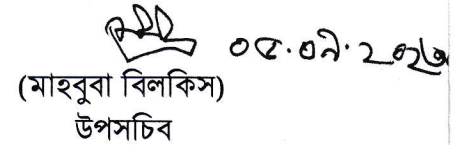 ০৫.০৯.২০২৩
(মাহবুবা বিলকিস)
উপসচিব